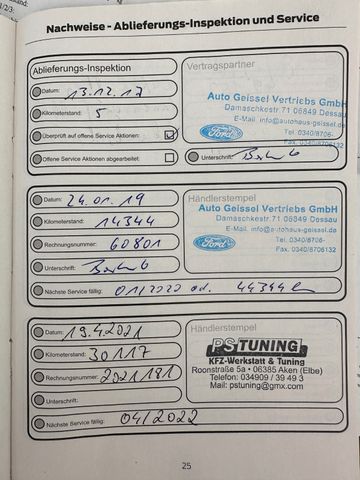 Nachweise - Ablieferungs-Inspektion und Service
Ablieferungs-Inspektion
Datum: 13.12.17
Kilometerstand: 5
Überprüft auf offene Service Aktionen:
Offene Service Aktionen abgearbeitet:
Vertragspartner
Auto Geissel Vertriebs GmbH
Damaschkestr.71 06849 Dessau
E-Mail info@autohaus-geissel.de
Ford
Tel. 0340/8706-
Fax. 0340/8706132
Unterschrift:
Datum: 24.01.19
Kilometerstand: 14344
Rechnungsnummer: 60801
Unterschrift:
Nächste Service fällig: 01/2020 od. 44344
Händlerstempel
Auto Geissel Vertriebs GmbH
Damaschkestr.71 06849 Dessau
E-Mail: info@autohaus-geissel.de
Ford
Tel. 0340/8706-
Fax. 0340/8706132
Datum: 19.4.2021
Kilometerstand: 30117
Rechnungsnummer: 2021181
Unterschrift:
Nächste Service fällig: 04/2022
Händlerstempel
PS TUNING
KFZ-Werkstatt & Tuning
Roonstraße 5a • 06385 Aken (Elbe)
Telefon: 034909 / 39 49 3
Mail: pstuning@gmx.com
25